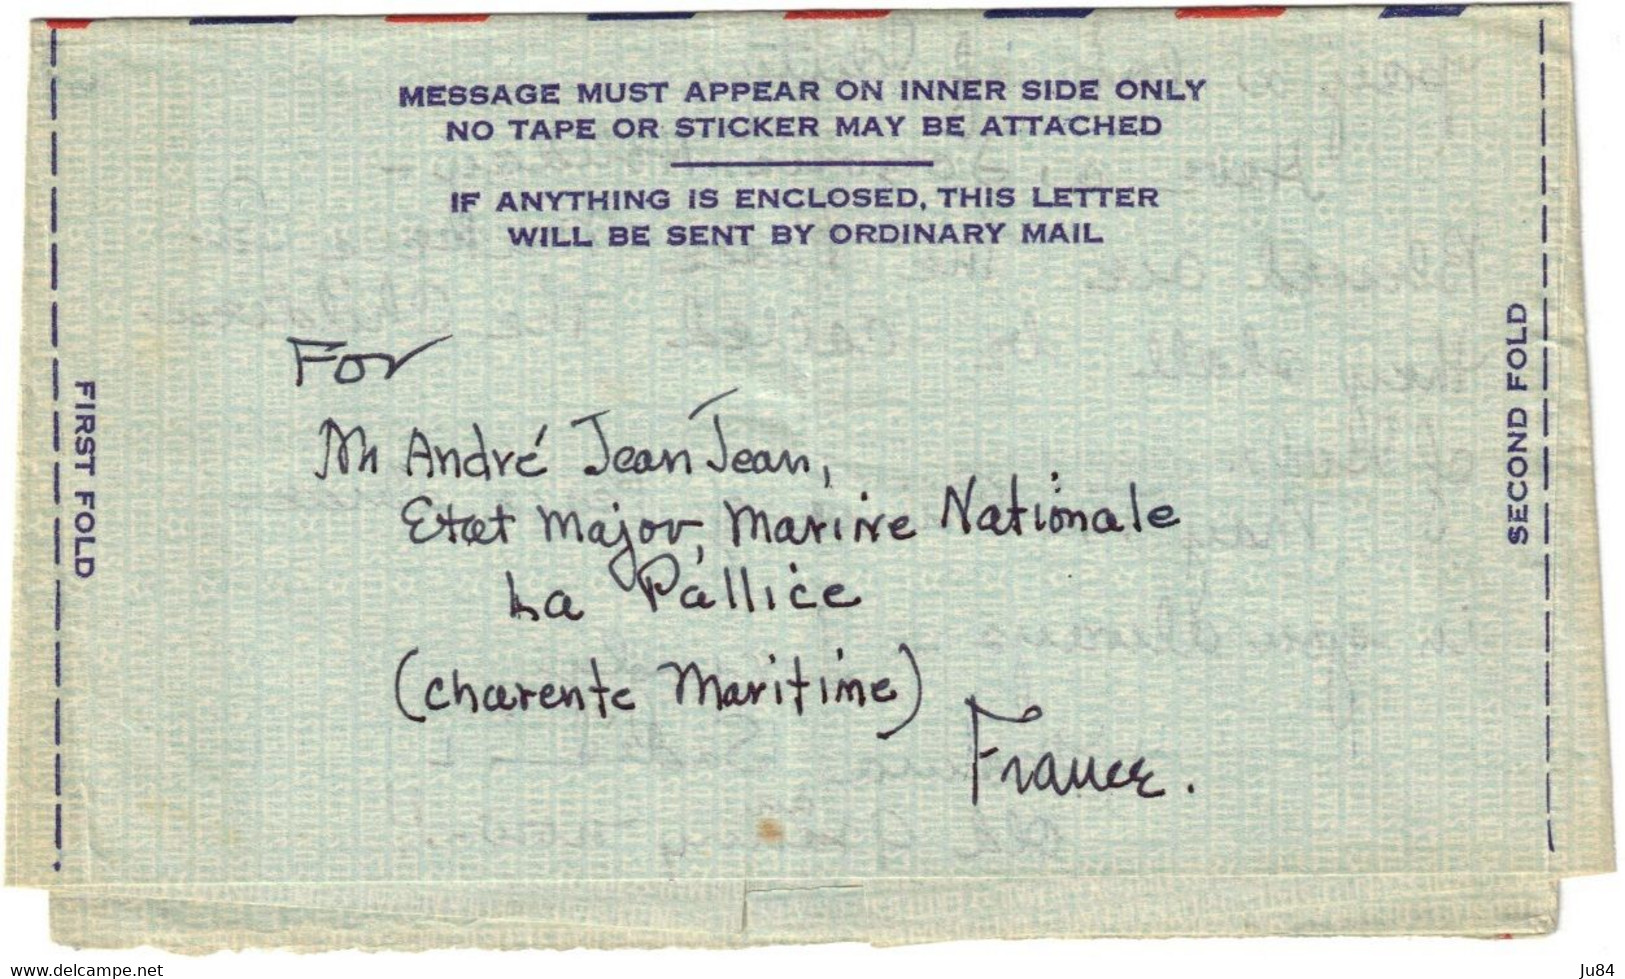 MESSAGE MUST APPEAR ON INNER SIDE ONLY
NO TAPE OR STICKER MAY BE ATTACHED
IF ANYTHING IS ENCLOSED, THIS LETTER
WILL BE SENT BY ORDINARY MAIL
FIRST FOLD
SECOND FOLD
For
André Jean Jean,
Etat Major, Marine Nationale
La Pallice
(Charente Maritime)
France.
www.delcampe.net
Ju84